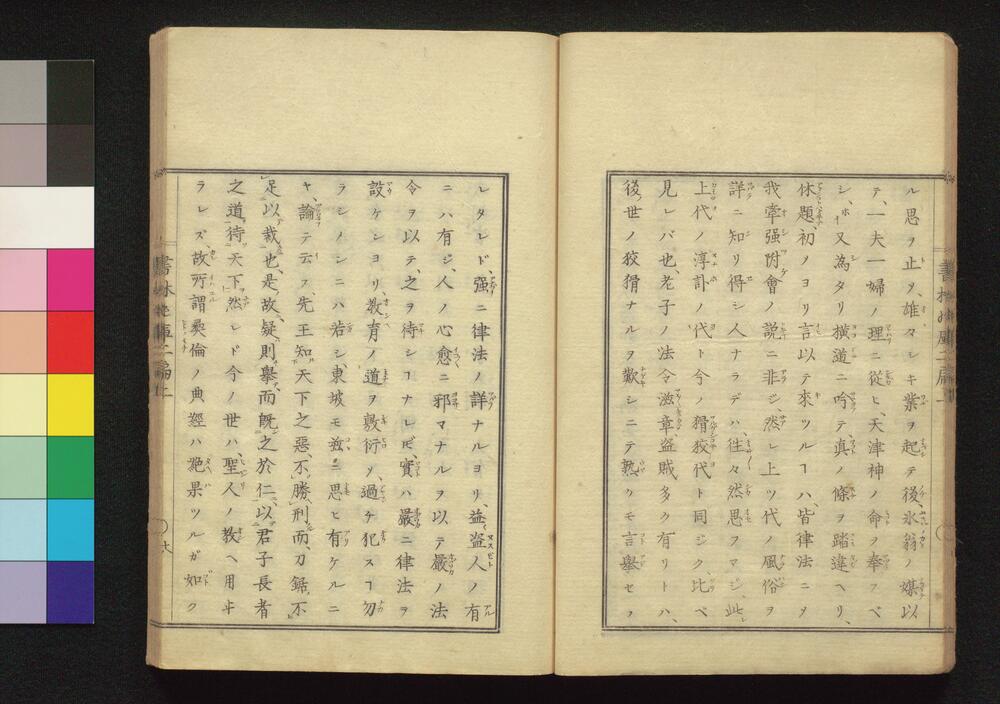 ル思ノ止ヲ、雄々シキ業ヲ起テ後、氷翁ノ媒以
テ、一夫一婦ノ理ニ從ヒ、天津神ノ命ヲ奉フベ
シ、又為タリ横道ニ吟テ真ノ條ヲ踏違ヘリ、
休題、初ノヨリ言以テ來ツルヿハ、皆律法ニヲ
我牽强附會ノ説ニ非ジ、然レ上ツ代ノ風俗ヲ
詳ニ知リ得シ人ナラデハ、徃々然思フマジ、此、
上代ノ淳訃ノ代ト今ノ猾狡代ト同ジク、比ベ
見レバ也、老子ノ法令滋章、盗賊多ク有リトハ、
後世ノ狡猾ナルヲ歎シニテ熟クモ言擧セラ
レタレド、强ニ律法ノ詳ナルヨリ益盗人ノ有
ニハ有ジ、人ノ心愈ニ邪マナルヲ以テ嚴ノ法
令ヲ以テ、之ヲ待シヿナレ𪜈、實ハ嚴ニ律法ヲ
設ケシヨリ、教育ノ道ヲ敷衍ソ、過チ犯スヿ勿
ラシノンニハ若シ、東坡モ玆ニ思ヒ有ケルニ
ヤ、論テ云フ、先王知天下之惡、不勝刑而、刀鋸不
足以裁也、是故、疑則擧而既之於仁、以君子長者
之道、待天下、然レド今ノ世ハ、聖人ノ教ヘ用ヰ
ラレズ、故所謂彜倫ノ典經ハ絶果ツルガ如ク